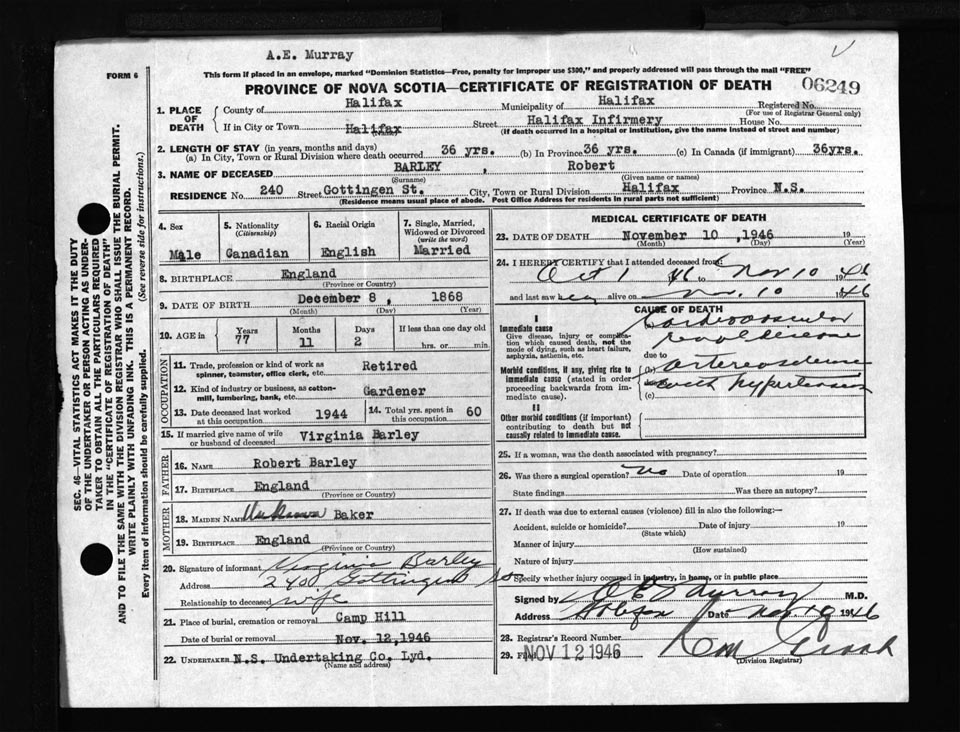 A.E. Murray
FORM 6
This form if placed in an envelope, marked "Dominion Statistics—Free, penalty for improper use $300," and properly addressed will pass through the mail "FREE"
PROVINCE OF NOVA SCOTIA—CERTIFICATE OF REGISTRATION OF DEATH
06249
1. PLACE OF DEATH
County of Halifax Municipality of Halifax Registered No.
(For use of Registrar General only)
If in City or Town Halifax Street Halifax Infirmery House No.
(If death occurred in a hospital or institution, give the name instead of street and number)
2. LENGTH OF STAY (in years, months and days)
(a) In City, Town or Rural Division where death occurred 36 yrs. (b) In Province 36 yrs. (c) In Canada (if immigrant) 36yrs.
3. NAME OF DECEASED BARLEY , Robert
(Surname) (Given name or names)
RESIDENCE No. 240 Street Gottingen St. City, Town or Rural Division Halifax Province N.S.
(Residence means usual place of abode. Post Office Address for residents in rural parts not sufficient)
4. Sex
Male
5. Nationality
(Citizenship)
Canadian
6. Racial Origin
English
7. Single, Married, Widowed or Divorced
(write the word)
Married
8. BIRTHPLACE England
(Province or Country)
9. DATE OF BIRTH December 8, 1868
(Month) (Day) (Year)
10. AGE in Years Months Days If less than one day old
77 11 2 hrs. or min.
OCCUPATION
11. Trade, profession or kind of work as Retired
spinner, teamster, office clerk, etc.
12. Kind of industry or business, as cotton-
mill, lumbering, bank, etc. Gardener
13. Date deceased last worked at this occupation 1944
14. Total yrs. spent in this occupation 60
15. If married give name of wife
or husband of deceased Virginia Barley
FATHER
16. NAME Robert Barley
17. BIRTHPLACE England
(Province or Country)
MOTHER
18. MAIDEN NAME Unknown Baker
19. BIRTHPLACE England
(Province or Country)
20. Signature of informant Virginia Barley
Address 240 Gottingen St
Relationship to deceased wife
21. Place of burial, cremation or removal Camp Hill
Date of burial or removal Nov. 12,1946
22. UNDERTAKER N.S. Undertaking Co. Lyd.
(Name and address)
MEDICAL CERTIFICATE OF DEATH
23. DATE OF DEATH November 10 ,1946 19
(Month) (Day) (Year)
24. I HEREBY CERTIFY that I attended deceased from:
Oct 1 46 to Nov 10 1946
and last saw alive on Nov. 10 1946
CAUSE OF DEATH
I
Immediate cause
Give disease, injury or complication which caused death, not the mode of dying, such as heart failure, asphyxia, asthenia, etc.
Cardiovascular
renal disease
due to
Morbid conditions, if any, giving rise to immediate cause (stated in order proceeding backwards from immediate cause).
(b)
with hypertension
(c)
II
Other morbid conditions (if important) contributing to death but not causally related to immediate cause.
25. If a woman, was the death associated with pregnancy?
26. Was there a surgical operation? No Date of operation 19
State findings Was there an autopsy?
27. If death was due to external causes (violence) fill in also the following:—
Accident, suicide or homicide? Date of injury 19
(State which)
Manner of injury
(How sustained)
Nature of injury
Specify whether injury occured in industry, in home, or in public place
Signed by A E Murray M.D.
Address Halifax Date Nov. 1946
28. Registrar's Record Number
29. Filed NOV 12 1946
(Division Registrar)
SEC. 46—VITAL STATISTICS ACT MAKES IT THE DUTY
OF THE UNDERTAKER OR PERSON ACTING AS UNDER-
TAKER TO OBTAIN ALL THE PARTICULARS REQUIRED
IN THE "CERTIFICATE OF REGISTRATION OF DEATH"
AND TO FILE THE SAME WITH THE DIVISION REGISTRAR WHO SHALL ISSUE THE BURIAL PERMIT.
WRITE PLAINLY WITH UNFADING INK. THIS IS A PERMANENT RECORD.
Every item of information should be carefully supplied. (See reverse side for instructions.)